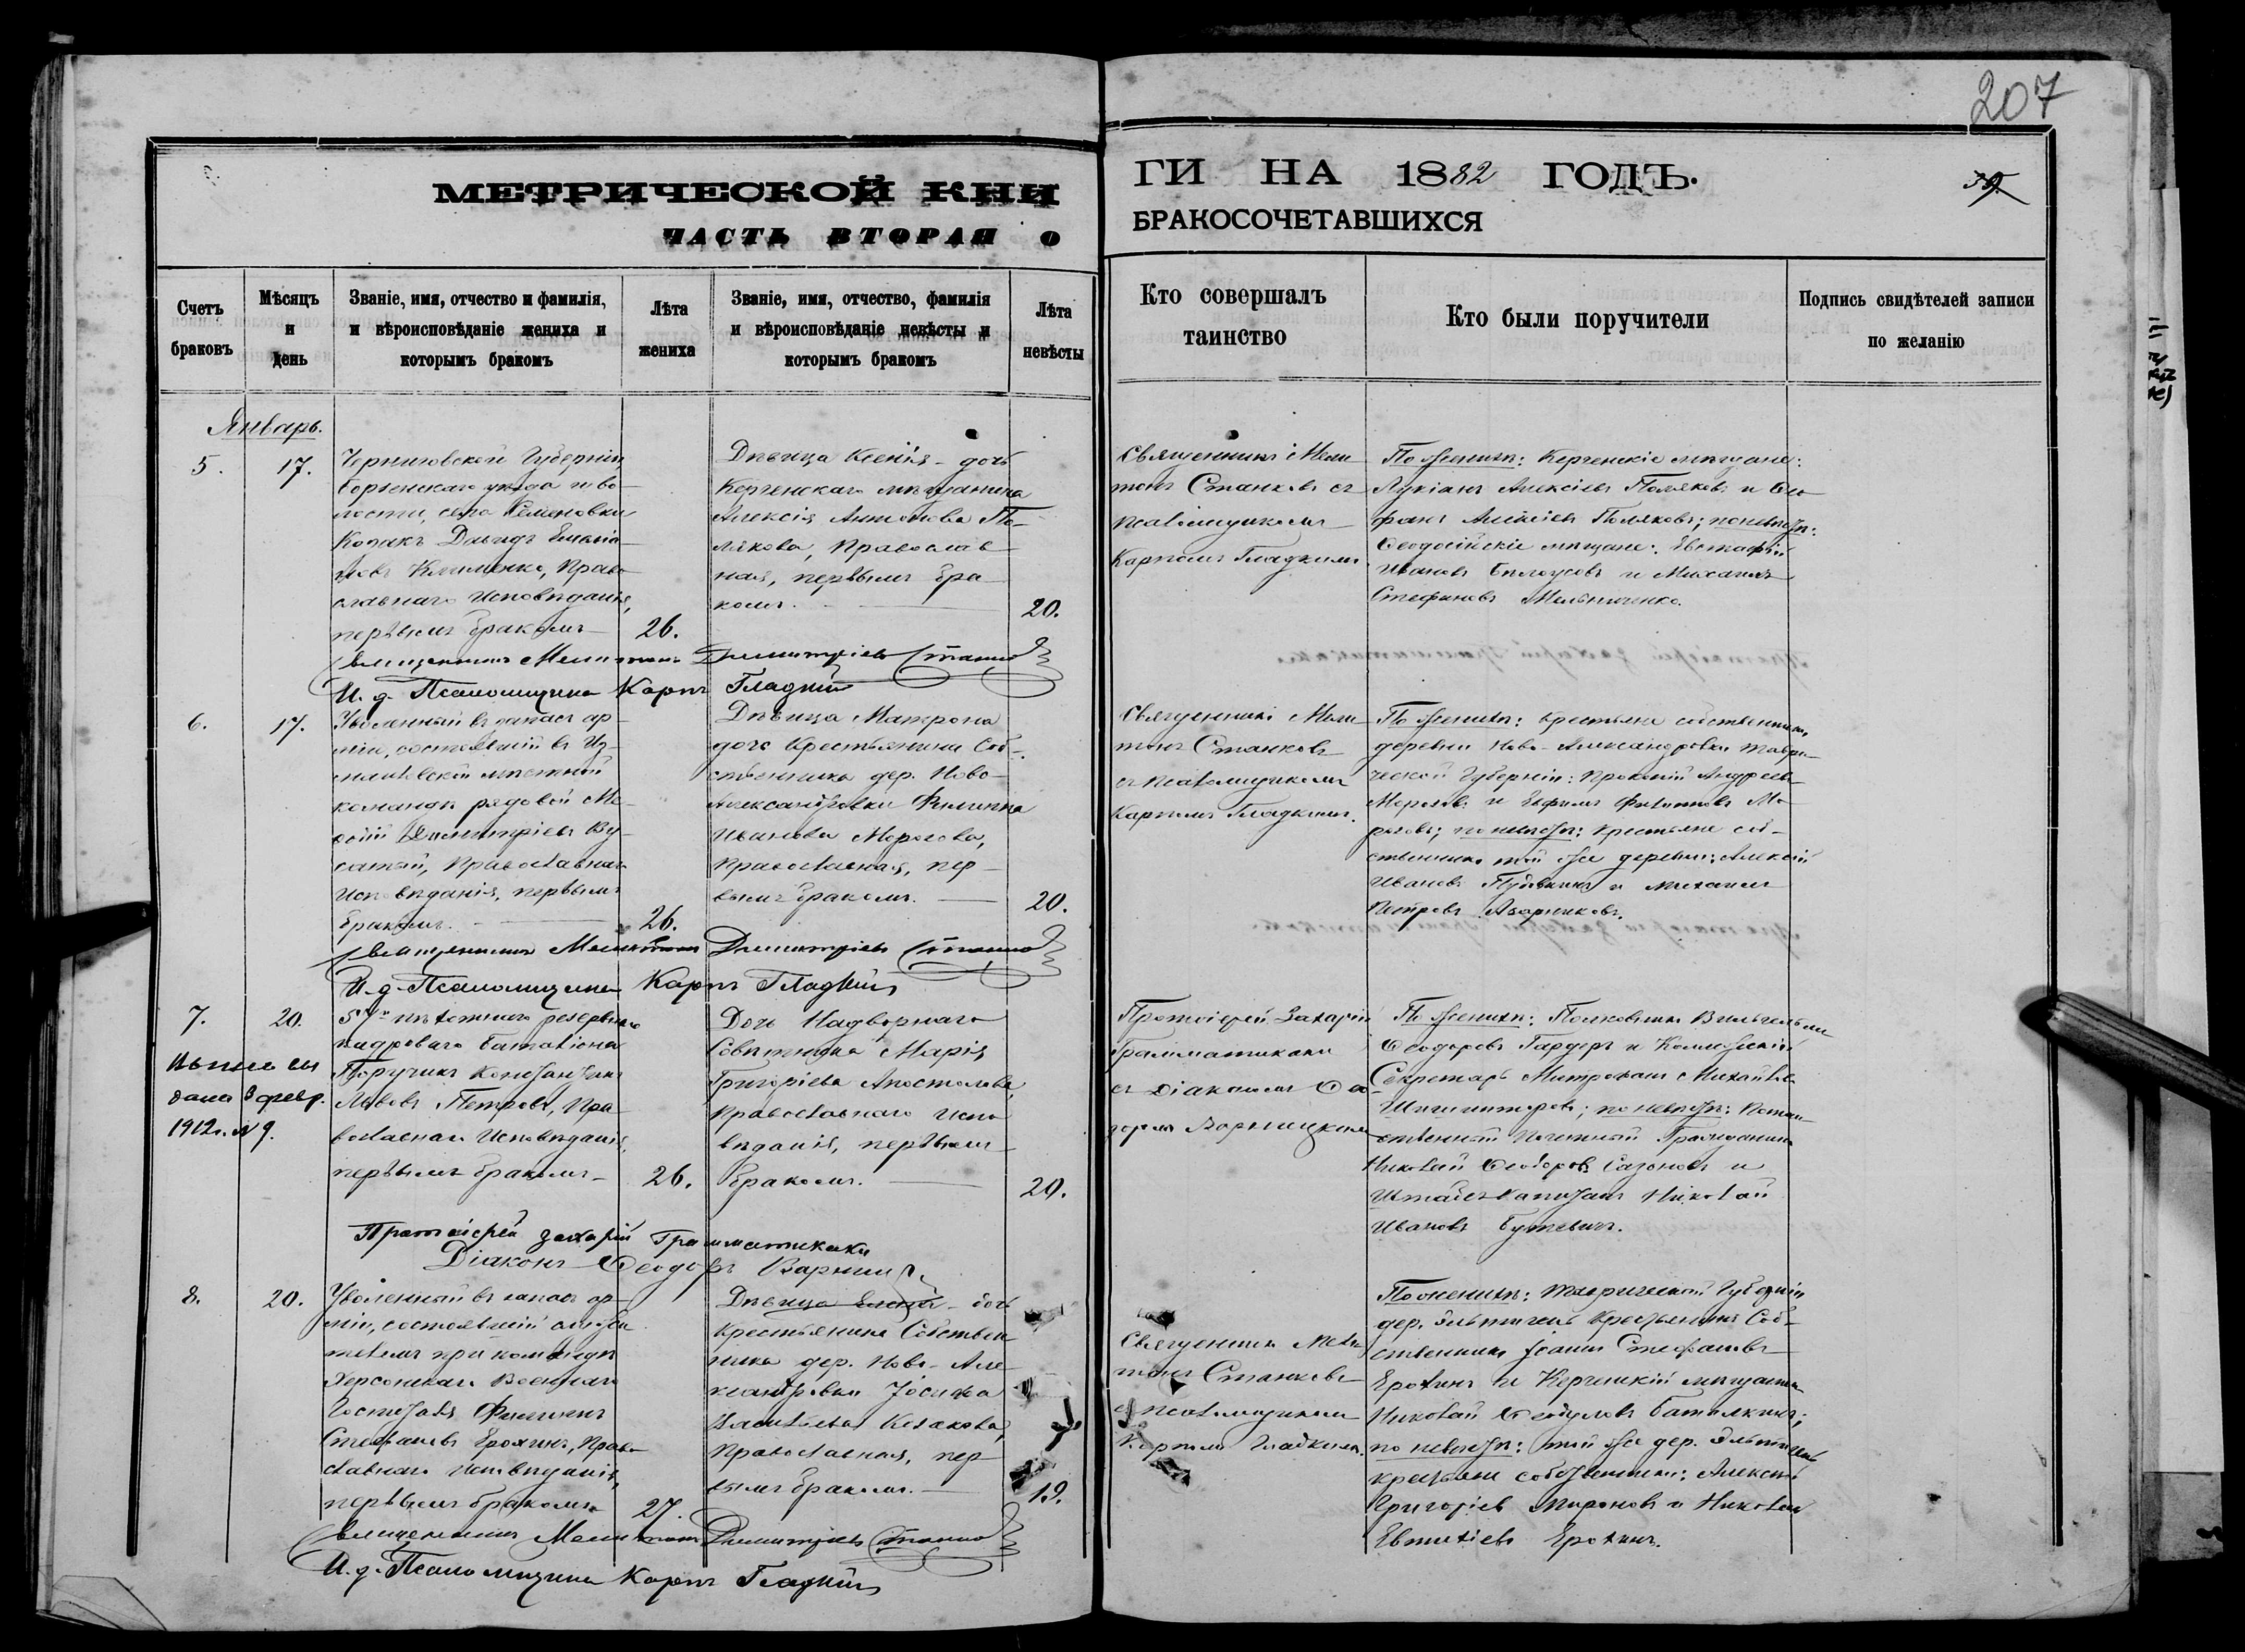 207
МЕТРИЧЕСКОЙ КНИ
ГИ НА 1882 ГОДЪ.
ЧАСТЬ ВТОРАЯ О
БРАКОСОЧЕТАВШИХСЯ
Счетъ браковъ
Мѣсяцъ и день
Званіе, имя, отчество и фамилія,
и вѣроисповѣданіе жениха и
которымъ бракомъ
Лѣта жениха
Званіе, имя, отчество, фамилія
и вѣроисповѣданіе невѣсты и
которымъ бракомъ
Лѣта невѣсты
Кто совершалъ
таинство
Кто были поручители
Подпись свидѣтелей записи
по желанію
Январь.
5.
17.
Черниговской Губерніи,
Борзенскаго уѣзда и во-
лости, села
Козакъ Давидъ Емелія-
новъ Клименко, Право-
славнаго Исповѣданія,
первымъ бракомъ
26.
Дѣвица Ксенія - дочь
Керченскаго мѣщанина
Алексія Антонова По-
лякова, Православ-
ная, первымъ бра-
комъ.
20.
Священникъ Мели-
тонъ Станковъ съ
псаломщикомъ
Карпомъ Гладкимъ.
По женихѣ: Керченскіе мѣщане:
Лукіанъ Алексіевъ Поляковъ и Сте-
фанъ Алексіевъ Поляковъ; по невѣстѣ:
Ѳеодосійскіе мѣщане: Евстафій
Ивановъ Бѣлоусовъ и Михаилъ
Стефановъ Мельниченко.
Священникъ Мелитонъ Димитріевъ Станковъ
И. д. Псаломщика Карпъ Гладкій
6.
17.
Уволенный въ запасъ ар-
міи, состоявшій въ Из-
маиловской мѣстной
командѣ рядовой Мо-
сей Димитріевъ
Православнаго
Исповѣданія, первымъ
бракомъ.
26.
Дѣвица Матрона
дочь Крестьянина Соб-
ственника дер. Ново-
Александровки Филиппа
Иванова Морозова,
Православная, пер-
вымъ бракомъ.
20.
Священникъ Мели-
тонъ Станковъ
съ псаломщикомъ
Карпомъ Гладкимъ.
По женихѣ: Крестьяне собственники
деревни Ново-Александровки Таври-
ческой Губерніи: Прокопій Андреевъ
Морозовъ и Ефимъ Филипповъ Мо-
розовъ; по невѣстѣ: Крестьяне соб-
ственники той же деревни: Алексій
Ивановъ и Михаилъ
Петровъ
Священникъ Мелитонъ Димитріевъ Станковъ
И. д. Псаломщика Карпъ Гладкій
7.
20.
57го пѣхотнаго резервнаго
кадроваго баталіона
Поручикъ Константинъ
Львовъ Петровъ, Пра-
вославнаго Исповѣданія,
первымъ бракомъ
26.
дана 8 февр.
1912 г. № 9.
Дочь Надворнаго
Совѣтника Марія
Григоріева Апостолова,
Православнаго Испо-
вѣданія, первымъ
бракомъ.
20.
Протоіерей Захарій
Грамматикаки
съ Діакономъ Ѳео-
доромъ Варницкимъ
По женихѣ: Полковникъ Вильгельмъ
Ѳеодоровъ Гардеръ и Коллежскій
Секретарь Митрофанъ Михайловъ
по невѣстѣ: Потом-
ственный Почетный Гражданинъ
Николай Ѳеодоровъ Сазоновъ и
Штабсъ-Капитанъ Николай
Ивановъ Бутевичъ.
Протоіерей Захарій Грамматикаки
Діаконъ Ѳеодоръ
8.
20.
Уволенный въ запасъ ар-
міи, состоявшій служи-
телемъ при командѣ
Херсонскаго Военнаго
Госпиталя Филиппъ
Стефановъ Ерохинъ, Право-
славнаго Исповѣданія,
первымъ бракомъ
27.
Дѣвица - дочь
Крестьянина Собствен-
ника дер. Ново-Але-
ксандровки Іосифа
Васильева Козакова,
Православная, пер-
вымъ бракомъ.
19.
Священникъ Мели-
тонъ Станковъ
съ псаломщикомъ
Карпомъ Гладкимъ.
По женихѣ: Таврической Губерніи
дер. Эльтигень Крестьянинъ Соб-
ственникъ Іоаннъ Стефановъ
Ерохинъ и Керченскій мѣщанинъ
Николай
по невѣстѣ: той же дер. Эльтигень
крестьяне собственники: Алексѣй
Григоріевъ Мироновъ и Николай
Евтихіевъ Ерохинъ.
Священникъ Мелитонъ Димитріевъ Станковъ
И. д. Псаломщика Карпъ Гладкій